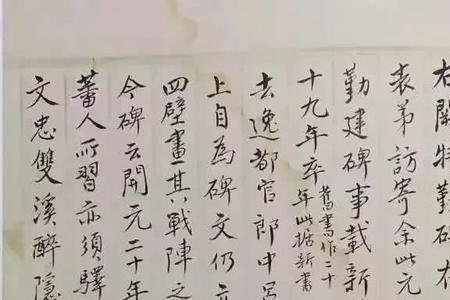 右闕特勤碑在
表弟訪寄余此元
勤建碑事載新
十九年卒舊書作二十年此據新書
去逸都官郎中呂
上自為碑文仍立
四壁畫其戰陣之
今碑云開元二十年
蕃人所習亦須驛
文忠雙溪醉隱